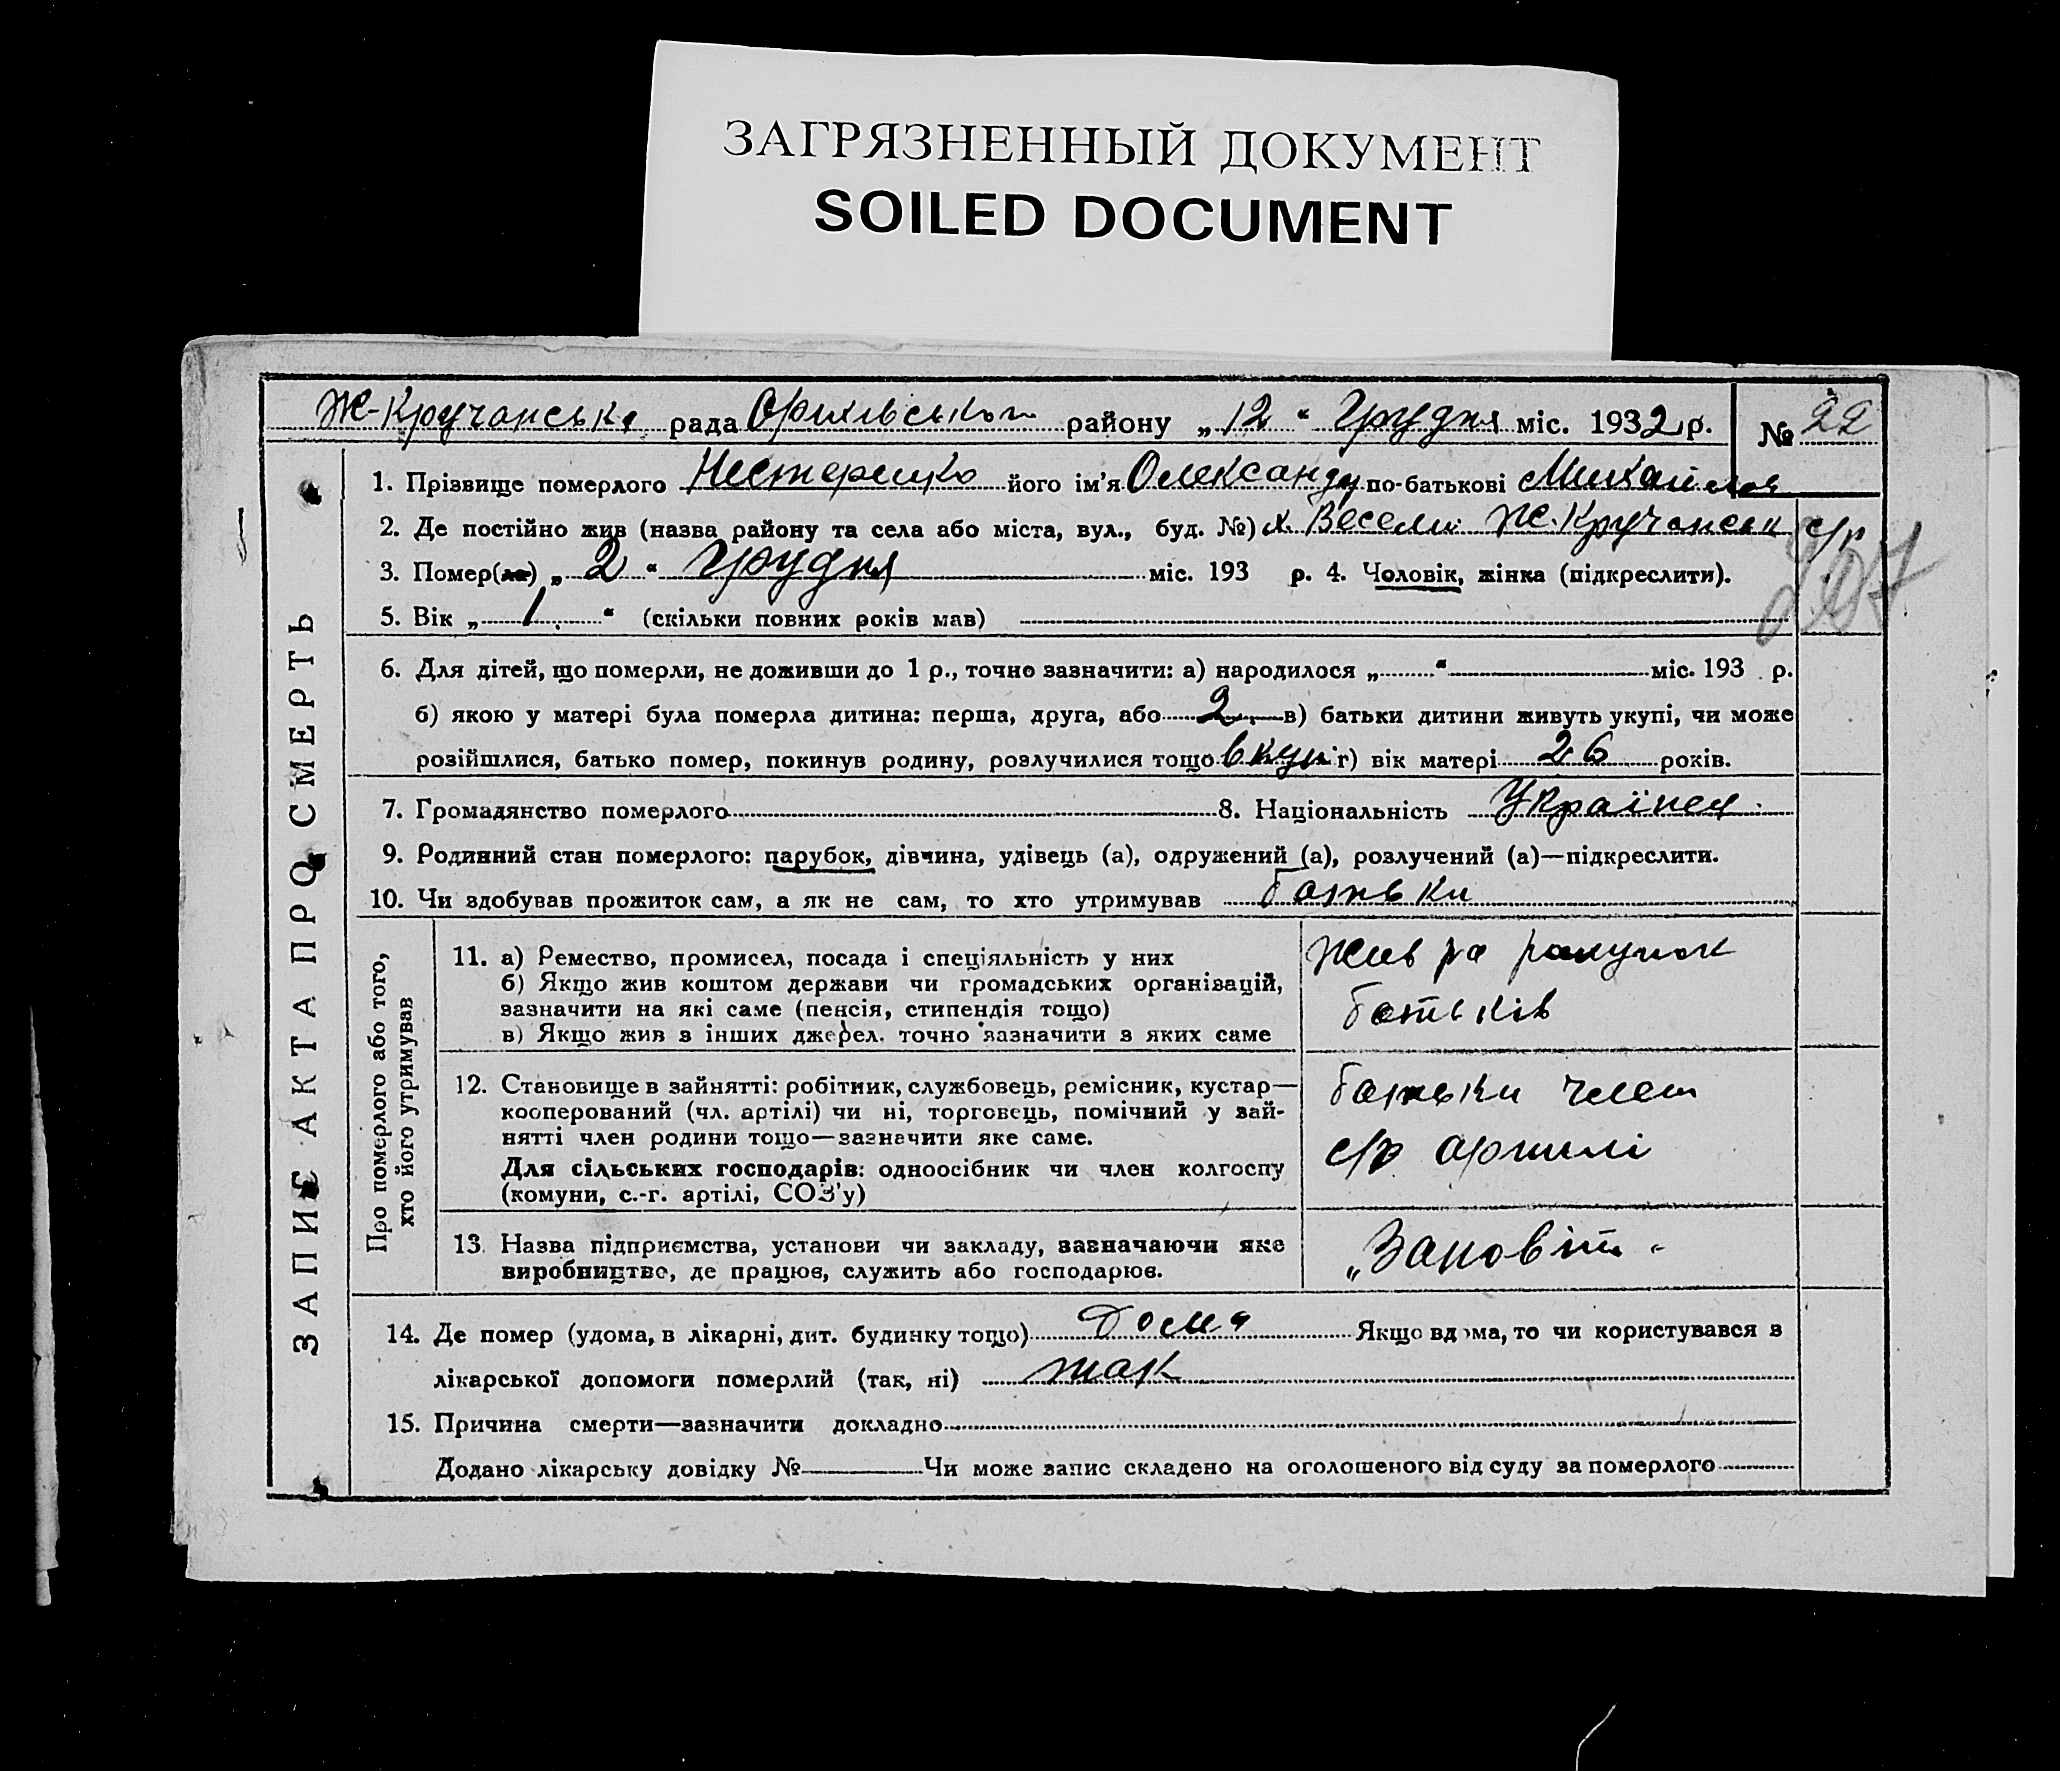 ЗАГРЯЗНЕННЫЙ ДОКУМЕНТ
SOILED DOCUMENT
Ж-Кручанська рада Оріхівськой району „ 12 “ Грудня міс. 1932 р. № 22
ЗАПИС АКТА ПРО СМЕРТЬ
1. Прізвище померлого Нестеренко його ім'я Олександр по-батькові Михайлов
2. Де постійно жив (назва району та села або міста, вул., буд. №) х. Весели Ж. Кручанськ с/р
3. Помер(ла) „ 2 “ Грудня міс. 193 р. 4. Чоловік, жінка (підкреслити).
5. Вік „ 1 “ (скільки повних років мав)
6. Для дітей, що померли, не доживши до 1 р., точно зазначити: а) народилося „ “ міс. 193 р.
б) якою у матері була померла дитина: перша, друга, або 2 в) батьки дитини живуть укупі, чи може
розійшлися, батько помер, покинув родину, розлучилися тощо вкупі г) вік матері 26 років.
7. Громадянство померлого 8. Національність Українец
9. Родинний стан померлого: парубок, дівчина, удівець (а), одружений (а), розлучений (а)—підкреслити.
10. Чи здобував прожиток сам, а як не сам, то хто утримував батьки
Про померлого або того,
хто його утримував
11. а) Ремество, промисел, посада і спеціяльність у них
б) Якщо жив коштом держави чи громадських організацій,
зазначити на які саме (пенсія, стипендія тощо)
в) Якщо жив з інших джерел. точно зазначити з яких саме
жив за рахунок
батьків
12. Становище в зайнятті: робітник, службовець, ремісник, кустар—
кооперований (чл. артілі) чи ні, торговець, помічний у зай-
нятті член родини тощо—зазначити яке саме.
Для сільських господарів: одноосібник чи член колгоспу
(комуни, с.-г. артілі, СОЗ'у)
батьки член
с/г артилі
13. Назва підприємства, установи чи закладу, зазначаючи яке
виробництво, де працюв, служить або господарює.
„Заповіт“
14. Де помер (удома, в лікарні, дит. будинку тощо) Дома Якщо вдома, то чи користувався з
лікарської допомоги померлий (так, ні) так
15. Причина смерти—зазначити докладно
Додано лікарську довідку № Чи може запис складено на оголошеного від суду за померлого